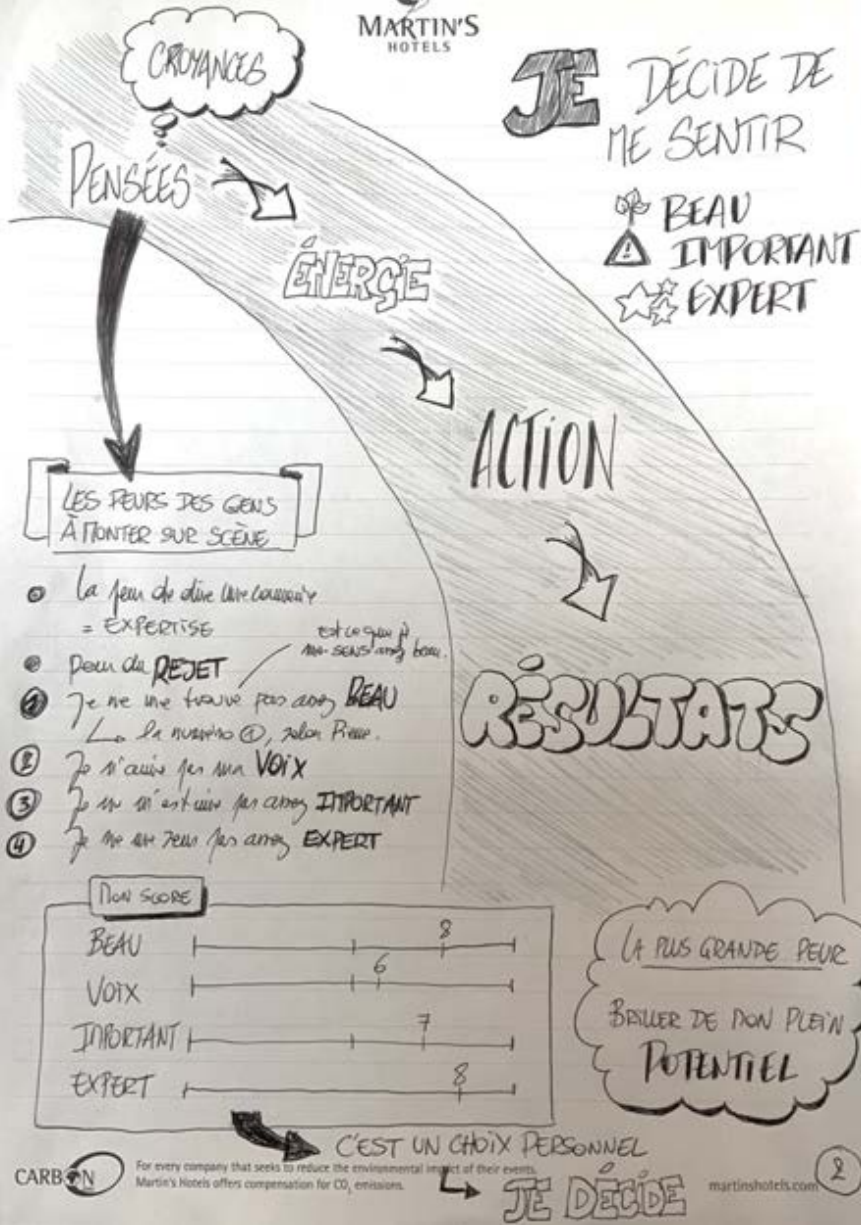 MARTIN'S
HOTELS
CROYANCES
PENSÉES
ÉNERGIE
ACTION
RÉSULTATS
JE DÉCIDE DE
ME SENTIR
BEAU
IMPORTANT
EXPERT
LES PEURS DES GENS
À MONTER SUR SCÈNE
La peur de dire une connerie
= EXPERTISE
peur du REJET
est ce que je
me SENS assez beau.
1 Je ne me trouve pas assez BEAU
La numéro 1, selon Pierre.
2 Je n'aime pas ma VOIX
3 Je ne m'estime pas assez IMPORTANT
4 Je ne me sens pas assez EXPERT
MON SCORE
BEAU 8
VOIX 6
IMPORTANT 7
EXPERT 8
LA PLUS GRANDE PEUR
BRILLER DE MON PLEIN
POTENTIEL
C'EST UN CHOIX PERSONNEL
JE DÉCIDE
CARBON
For every company that seeks to reduce the environmental impact of their events,
Martin's Hotels offers compensation for CO₂ emissions.
martinshotels.com
2